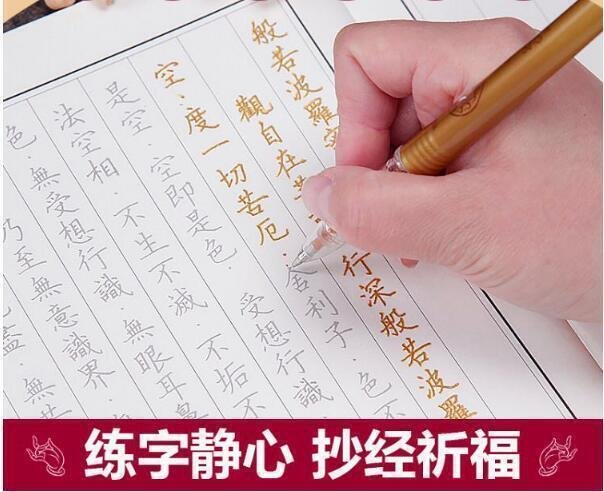 般若波羅
觀自在菩 行深般若波羅
空·度一切苦厄·舍利子·色不
是空·空即是色·受想行識
法空相·不生不滅·不垢不
色·無受想行識·無眼耳鼻
乃至無意識界·無
盡·無
练字静心 抄经祈福